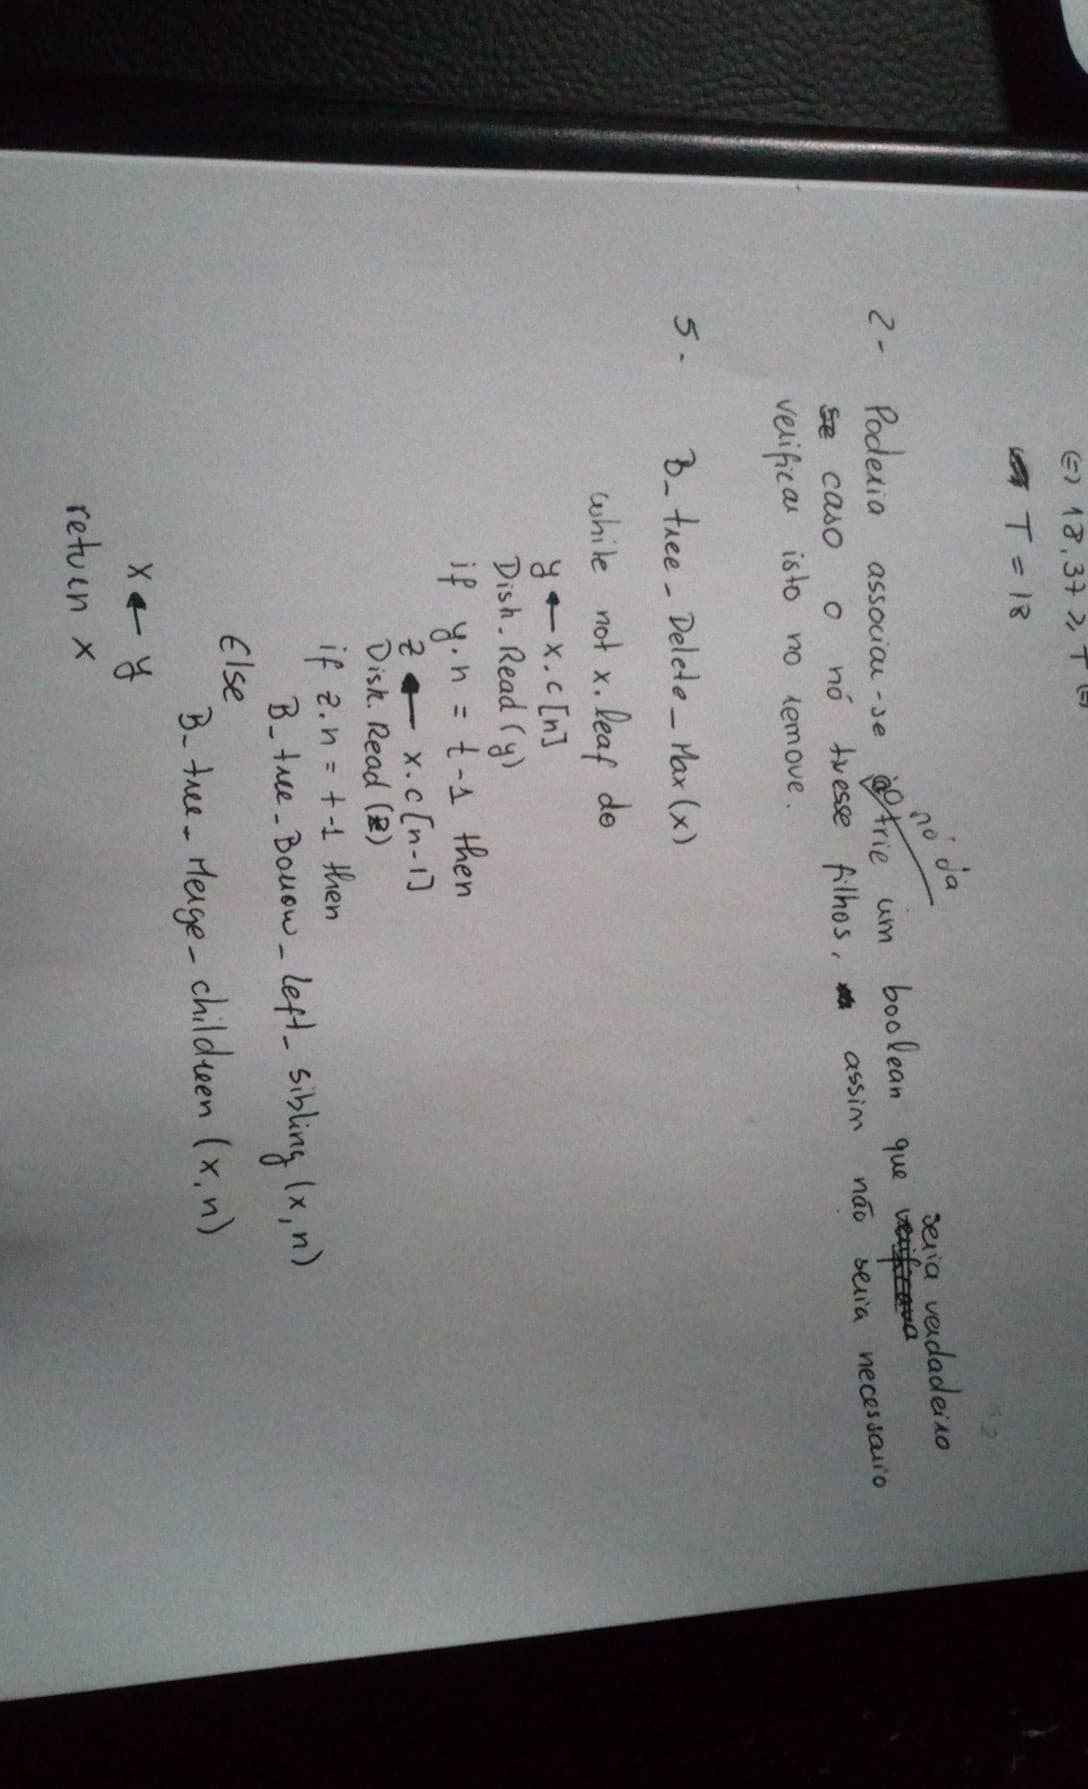 (=) 18,37 ⩾ T (=)
T = 18
nó da
seria verdadeiro
2- Poderia associar-se à trie um boolean que verificava
se caso o nó tivesse filhos, assim não seria necessario
verificar isto no remove.
5. B_tree_Delete_Max(x)
while not x.leaf do
y ← x.c[n]
Disk_Read(y)
if y.n = t-1 then
z ← x.c[n-1]
Disk.Read(z)
if z.n = t-1 then
B_tree_Borrow_left_sibling(x,n)
Else
B_tree_Merge_children(x,n)
x ← y
return x